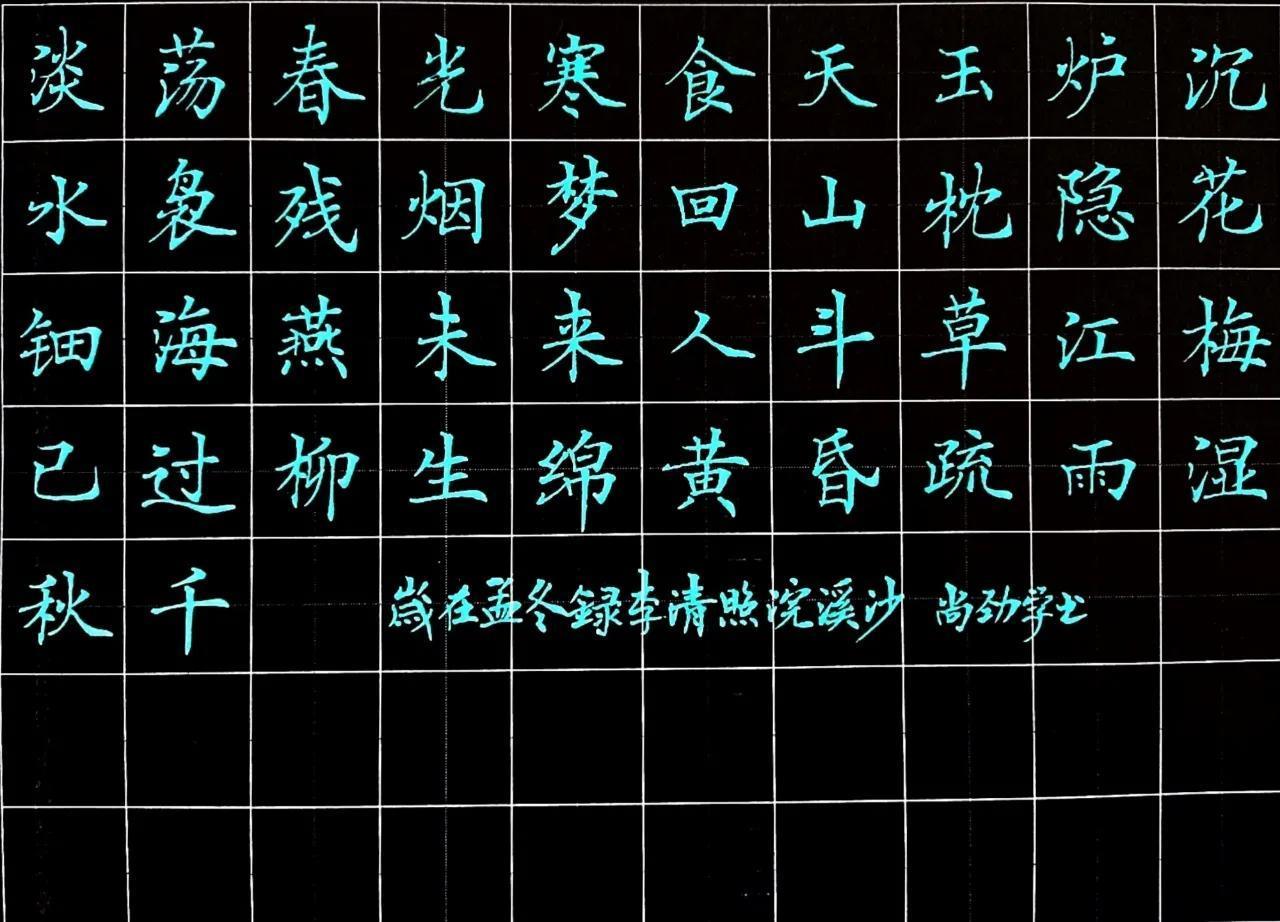 淡荡春光寒食天玉炉沉
水袅残烟梦回山枕隐花
钿海燕未来人斗草江梅
已过柳生绵黄昏疏雨湿
秋千
歳在孟冬録李清照浣溪沙 尚劲学书